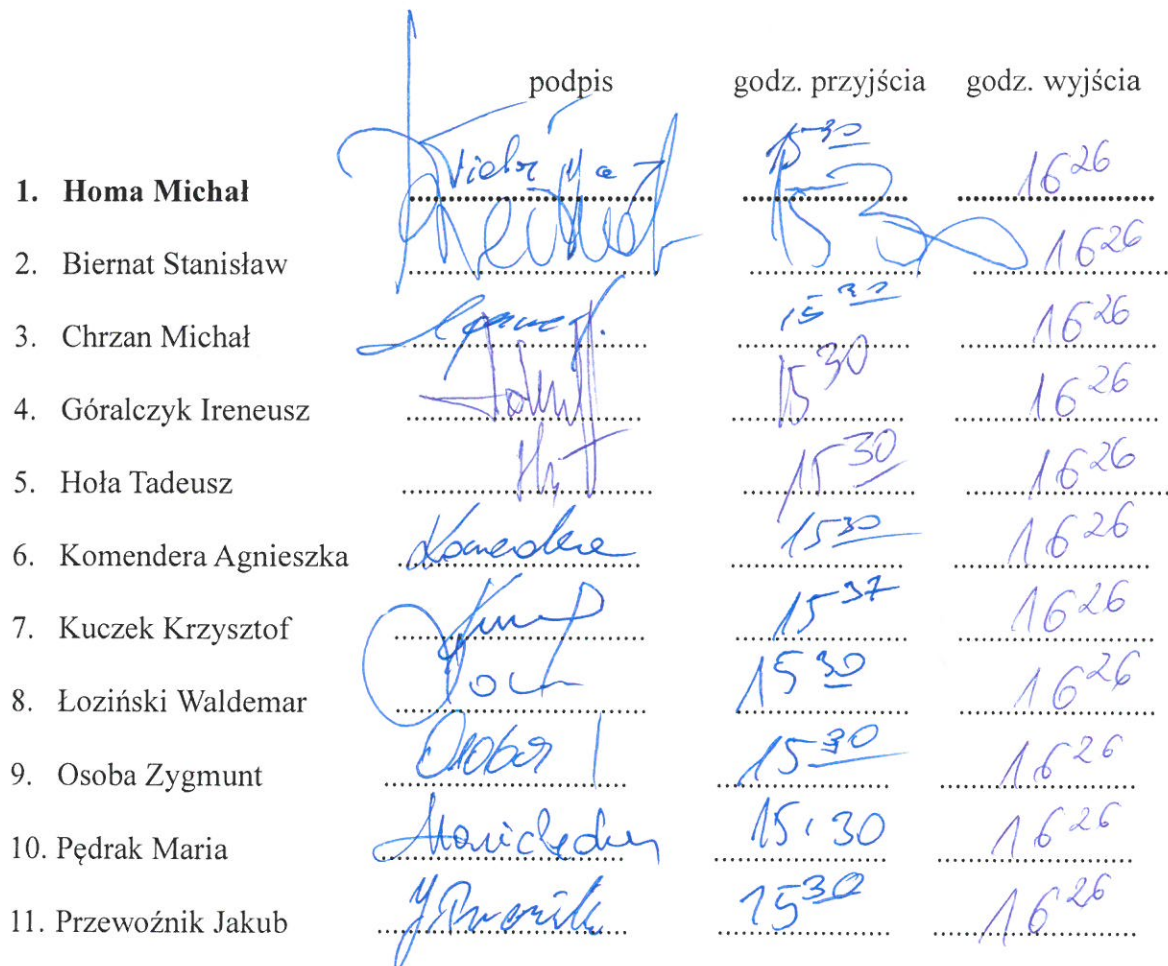 podpis godz. przyjścia godz. wyjścia
1. Homa Michał 15 30 16 26
2. Biernat Stanisław 15 30 16 26
3. Chrzan Michał 15 30 16 26
4. Góralczyk Ireneusz 15 30 16 26
5. Hoła Tadeusz 15 30 16 26
6. Komendera Agnieszka Komendera 15 30 16 26
7. Kuczek Krzysztof 15 37 16 26
8. Łoziński Waldemar 15 30 16 26
9. Osoba Zygmunt Osoba 15 30 16 26
10. Pędrak Maria 15,30 16 26
11. Przewoźnik Jakub 15 30 16 26